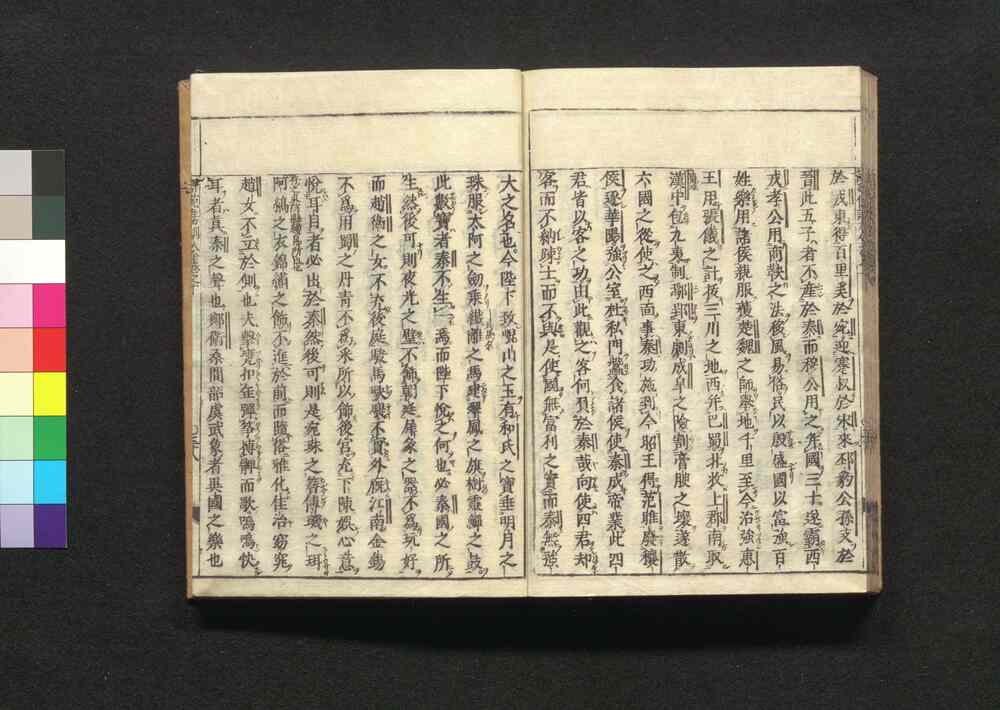 於戎東得百里奚於宛迎蹇叔於宋來邳豹公孫支於
晉此五子者不產於秦而穆公用之幷國三十遂霸西
戎孝公用商鞅之法移風易俗民以殷盛國以富強百
姓樂用諸侯親服獲楚魏之師舉地千里至今治強惠
王用張儀之計拔三川之地西幷巴蜀北收上郡南取
漢中包九夷制鄢郢東據成皋之險割膏腴之壤遂散
六國之從使之西面事秦功施到今昭王得范雎廢穰
侯逐華陽強公室杜私門蠶食諸侯使秦成帝業此四
君皆以客之功由此觀之客何負於秦哉向使四君却
客而不納疎士而不與是使國無富利之實而秦無彊
大之名也今陛下致崐山之玉有和氏之寶垂明月之
珠服太阿之劍乘纖離之馬建翠鳳之旗樹靈鼉之鼓
此數寶者秦不生一焉而陛下悅之何也必秦國之所
生然後可則夜光之璧不飾朝廷犀象之器不爲玩好
而趙衞之女不充後庭駿馬駃騠不實外廐江南金錫
不爲用蜀之丹青不爲采所以飾後宮充下陳娛心意
悅耳目者必出於秦然後可則是宛珠之簪傅璣之珥
阿縞之衣錦繡之飾不進於前而隨俗雅化佳冶窈窕
趙女不立於側也夫擊甕扣缶彈筝搏髀而歌嗚嗚快
耳者真秦之聲也鄭衞桑間韶虞武象者異國之樂也